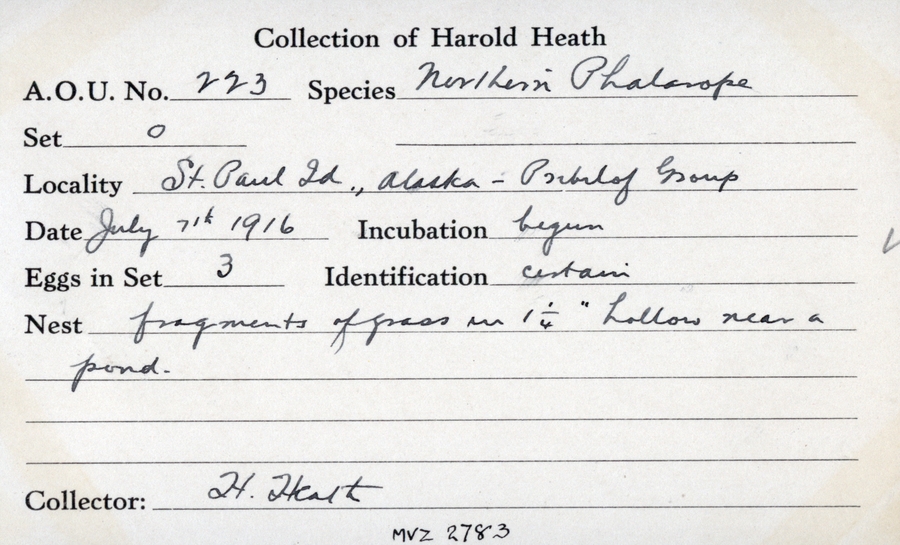 Collection of Harold Heath
A.O.U. No. 223 Species Northern Phalarope
Set 0
Locality St. Paul Id., Alaska - Pribilof Group
Date July 7th 1916 Incubation begun
Eggs in Set 3 Identification certain
Nest fragments of grass in 1 1/4" hollow near a
pond.
Collector: H. Heath
MVZ 2783